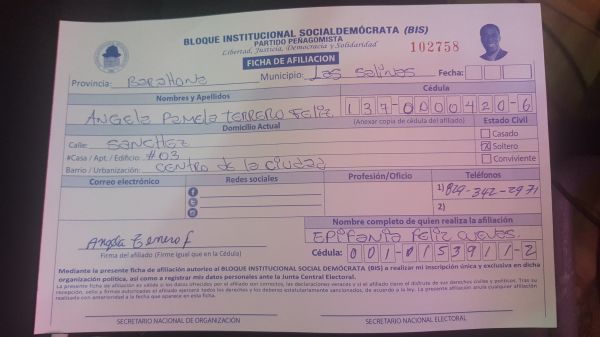 BLOQUE INSTITUCIONAL SOCIALDEMÓCRATA (BIS)
PARTIDO PEÑAGOMISTA
Libertad, Justicia, Democracia y Solidaridad
102758
FICHA DE AFILIACION
Provincia: Barahona Municipio: Las Salinas Fecha:
Nombres y Apellidos Cédula
Angela Pamela Terrero Feliz 137-0000420-6
Domicilio Actual (Anexar copia de cédula del afiliado) Estado Civil
Calle: Sanchez Casado
#Casa / Apt. / Edificio: #03 Soltero
Barrio / Urbanización: Centro de la ciudad Conviviente
Correo electrónico Redes sociales Profesión/Oficio Teléfonos
1) 829-342-2971
2)
Nombre completo de quien realiza la afiliación
Epifania Feliz Cuevas.
Angela Terrero f Cédula: 001-0153911-2
Firma del afiliado (Firme igual que en la Cédula)
Mediante la presente ficha de afiliación autorizo al BLOQUE INSTITUCIONAL SOCIAL DEMÓCRATA (BIS) a realizar mi inscripción única y exclusiva en dicha
organización política, así como a registrar mis datos personales ante la Junta Central Electoral.
La presente ficha de afiliación es válida si los datos ofrecidos por el afiliado son correctos, las declaraciones veraces y si el afiliado tiene el disfrute de sus derechos civiles y políticos. Tras su
recepción, sello y firmas autorizadas el afiliado ejercerá todos los derechos y los deberes estatutariamente sancionados, de acuerdo a la ley. La presente afiliación anula cualquier afiliación
realizada con anterioridad a la fecha que aparece en esta ficha.
SECRETARIO NACIONAL DE ORGANIZACIÓN SECRETARIO NACIONAL ELECTORAL